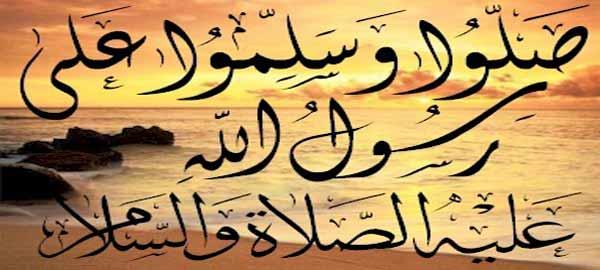 صَلُّوا وَسَلِّمُوا عَلَى
رَسُولُ اللهِ
عَلَيْهِ الصَّلَاة وَالسَّلَام